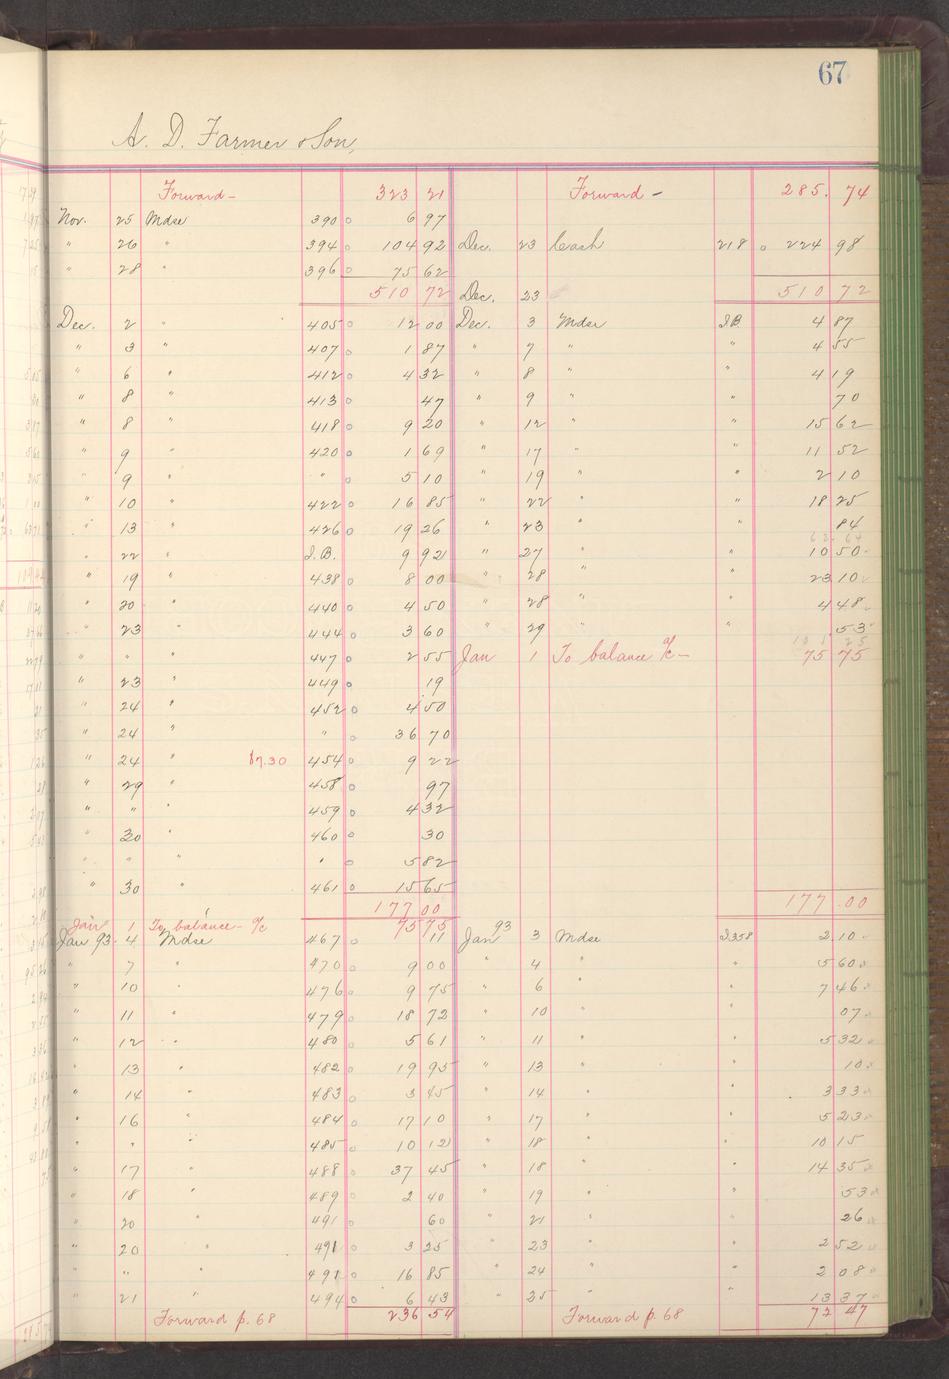 67
A. D. Farmer & Son,
Forward - 323 21 Forward - 285. 74
Nov. 25 Mdse 390 6 97
" 26 " 394 104 92 Dec. 23 Cash 218 224 98
" 28 " 396 75 62
510 72 Dec. 23 510 72
Dec. 2 " 405 12 00 Dec. 3 Mdse J.B. 4 87
" 3 " 407 1 87 " 7 " " 4 55
" 6 " 412 4 32 " 8 " " 4 19
" 8 " 413 47 " 9 " " 70
" 8 " 418 9 20 " 12 " " 15 62
" 9 " 420 1 69 " 17 " " 11 52
" 9 " " 5 10 " 19 " " 2 10
" 10 " 422 16 85 " 22 " " 18 25
" 13 " 426 19 26 " 23 " " 84
62 64
" 22 " J.B. 9 92 " 27 " " 10 50
" 19 " 438 8 00 " 28 " " 23 10
" 20 " 440 4 50 " 28 " " 4 48
" 23 " 444 3 60 " 29 " " 53
101 25
" " " 447 2 55 Jan 1 To balance a/c - 75 75
" 23 " 449 19
" 24 " 452 4 50
" 24 " " 36 70
" 24 " $7.30 454 9 22
" 29 " 458 97
" " " 459 4 32
" 30 " 460 30
" " " " 5 82
" 30 " 461 15 65
177 00 177 00
Jan 1 To balance - a/c 75 75
Jan 93. 4 Mdse 467 11 Jan 93 3 Mdse J358 2 10
" 7 " 470 9 00 " 4 " " 5 60
" 10 " 476 9 75 " 6 " " 7 46
" 11 " 479 18 72 " 10 " " 07
" 12 " 480 5 61 " 11 " " 5 32
" 13 " 482 19 95 " 13 " " 10
" 14 " 483 3 45 " 14 " " 3 33
" 16 " 484 17 10 " 17 " " 5 23
" " " 485 10 12 " 18 " " 10 15
" 17 " 488 37 45 " 18 " " 14 35
" 18 " 489 2 40 " 19 " " 53
" 20 " 491 60 " 21 " " 26
" 20 " 491 3 25 " 23 " " 2 52
" " " 491 16 85 " 24 " " 2 08
" 21 " 494 6 43 " 25 " " 13 37
Forward p. 68 236 54 Forward p. 68 72 47